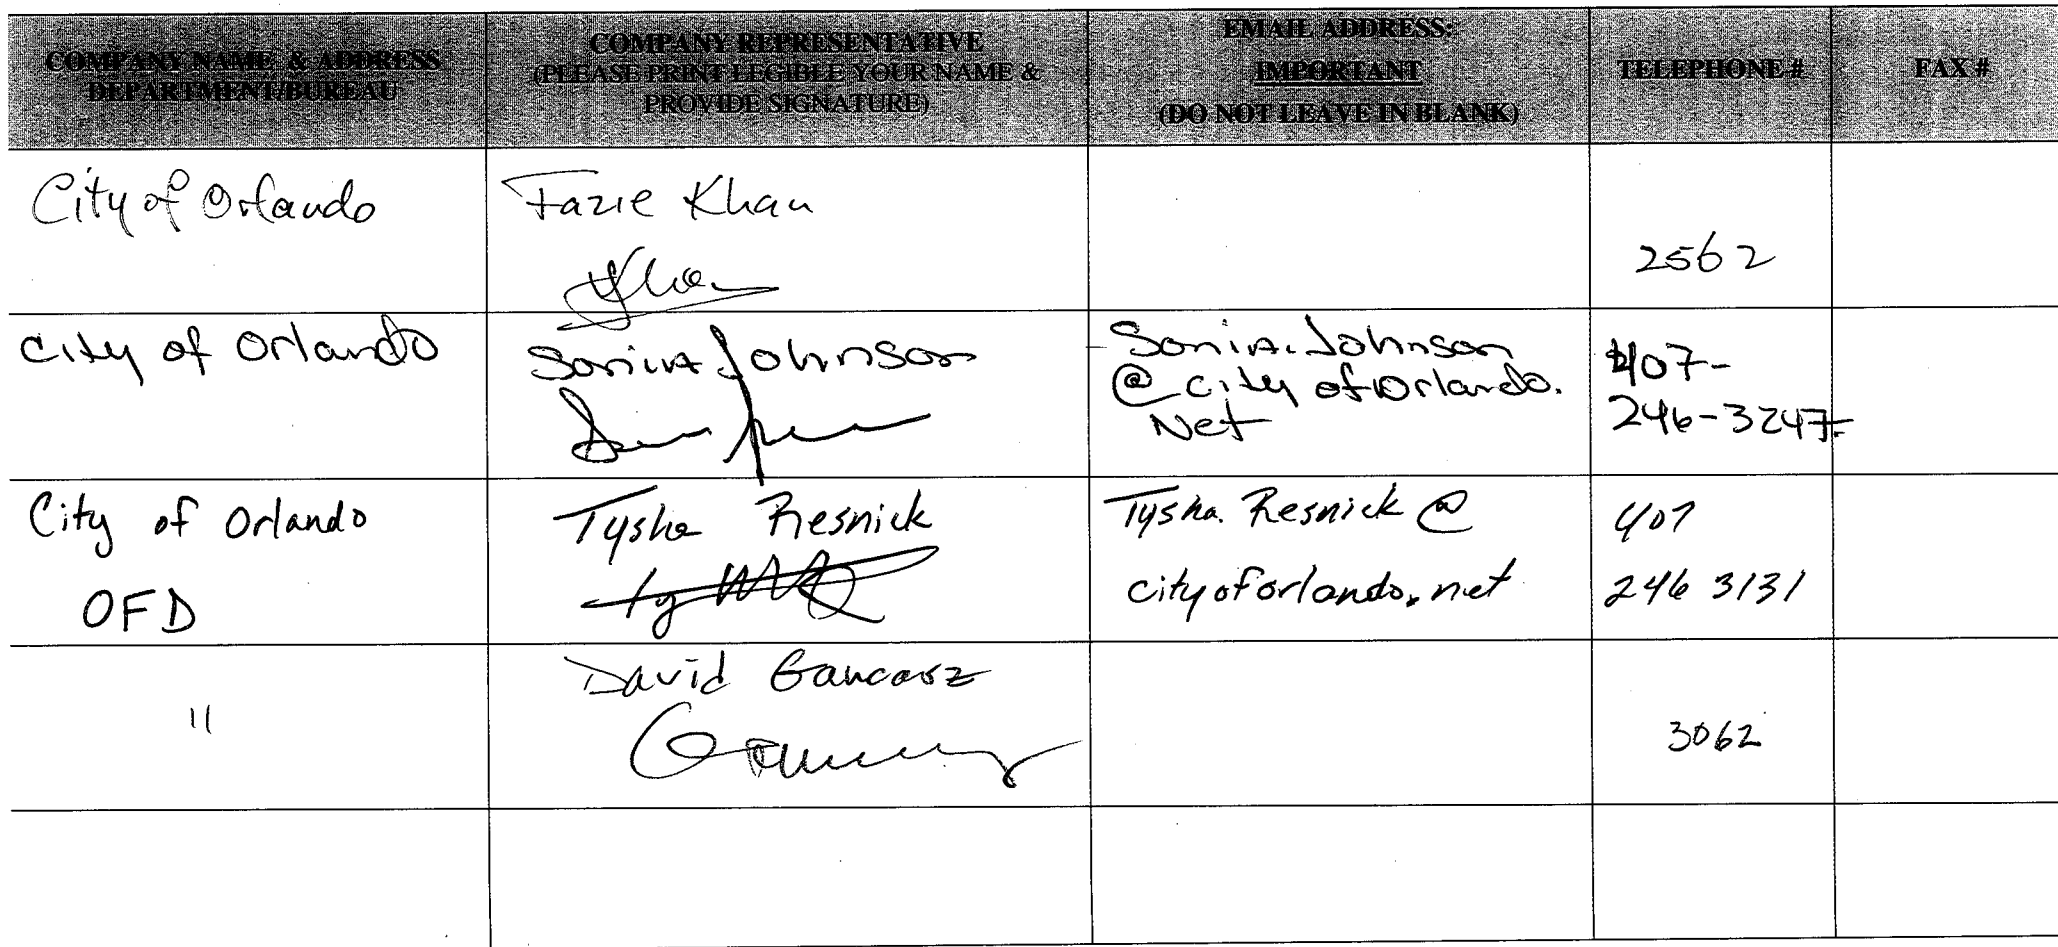 COMPANY NAME & ADDRESS
DEPARTMENT/BUREAU
COMPANY REPRESENTATIVE
(PLEASE PRINT LEGIBLE YOUR NAME &
PROVIDE SIGNATURE)
EMAIL ADDRESS:
IMPORTANT
(DO NOT LEAVE IN BLANK)
TELEPHONE #
FAX #
City of Orlando
Fazie Khan
2562
City of Orlando
Sonia Johnson
Sonia.Johnson
@cityoforlando.
Net
407-
246-3247
City of Orlando
OFD
Tysha Resnick
Tysha.Resnick@
cityoforlando.net
407
246 3131
"
David Gancarz
3062